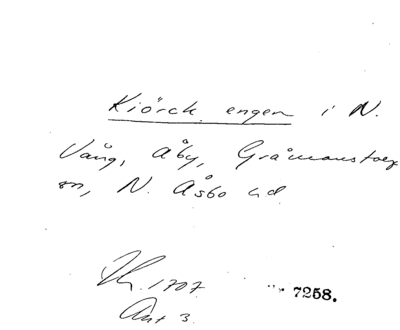 Kiörck engen i N.
Vång, Åby, Gråmanstorp
sn, N. Åsbo hd
1707 Nr 7258.
Akt 3.